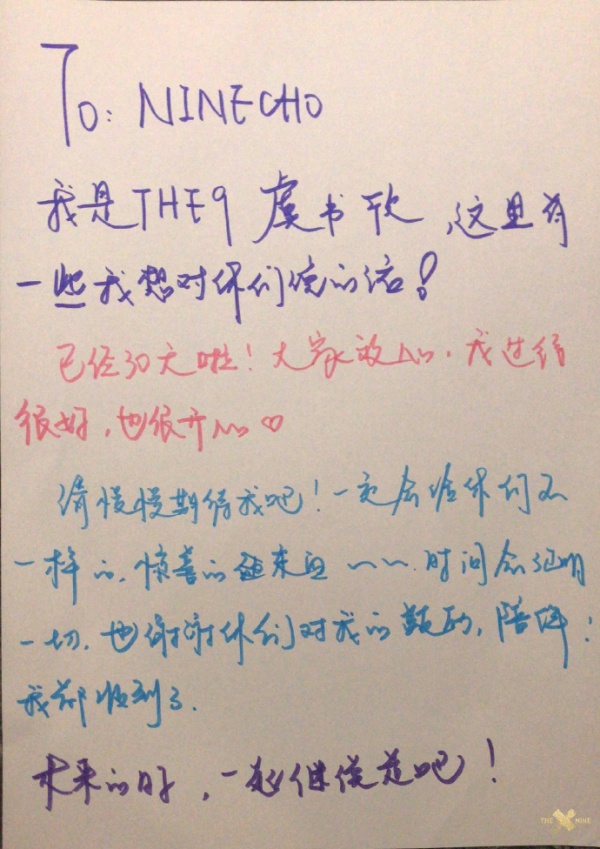 To: NINECHO
我是THE9 虞书欣,这里有
一些我想对你们说的话!
已经30天啦!大家放心,我过得
很好,也很开心♡
请慢慢期待我吧!一定会给你们不
一样的,惊喜的 ~~.时间会证明
一切.也谢谢你们对我的鼓励,陪伴:
我都收到了.
未来的日子,一起继续走吧!
THE NINE